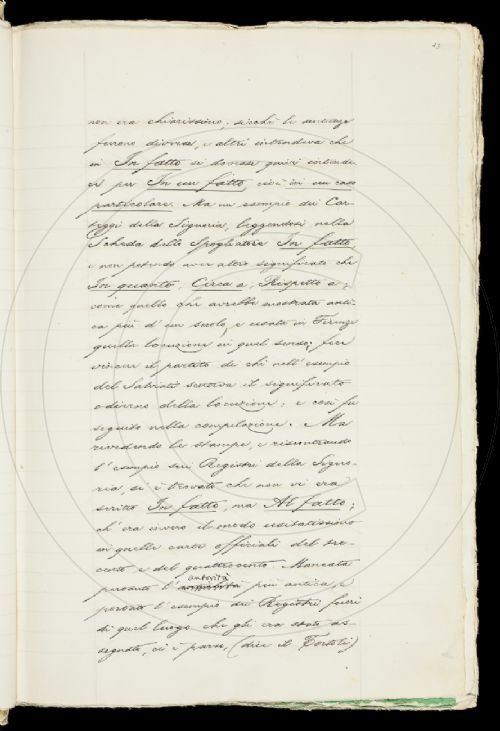 13
non era chiarissimo; sicchè le sentenze
furono diverse, e altri intendeva che
in In fatto si dovesse quivi intende-
re per In un fatto, cioè in un caso
particolare. Ma un esempio dei Car-
teggi della Signoria, leggendosi nella
Scheda dello Spogliatore In fatto,
e non potendo aver altro significato che
In quanto, Circa a, Rispetto a;
come quello che avrebbe mostrata anti-
ca più d'un secolo, e usata in Firenze
quella locuzione in quel senso; fece
vincere il partito di chi nell'esempio
del Salviati sentiva il significato
odierno della locuzione: e così fu
seguito nella compilazione. Ma
rivedendo le stampe, e riscontrando
l'esempio sui Registri della Signo-
ria, si è trovato che non vi era
scritto In fatto, ma Al fatto;
ch'era invero il modo usitatissimo
in quelle carte officiali del tre-
cento e del quattrocento. Mancata
pertanto l'autorità più antica, e
portato l'esempio dei Registri fuori
di quel luogo che gli era stato as-
segnato, ci è parso, (dice il Tortoli)